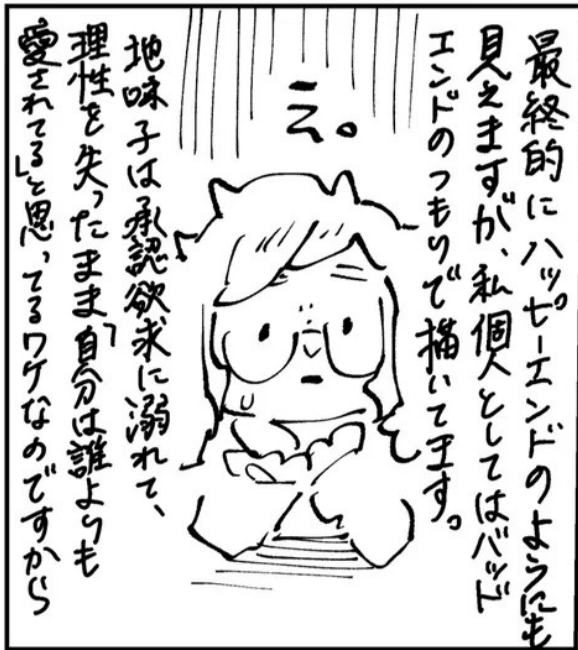 最終的にハッピーエンドのようにも
見えますが、私個人としてはバッド
エンドのつもりで描いて王す。
え。
地味子は承認欲求に溺れて、
理性を失ったまま「自分は誰よりも
愛されてる」と思ってるワケなのですから